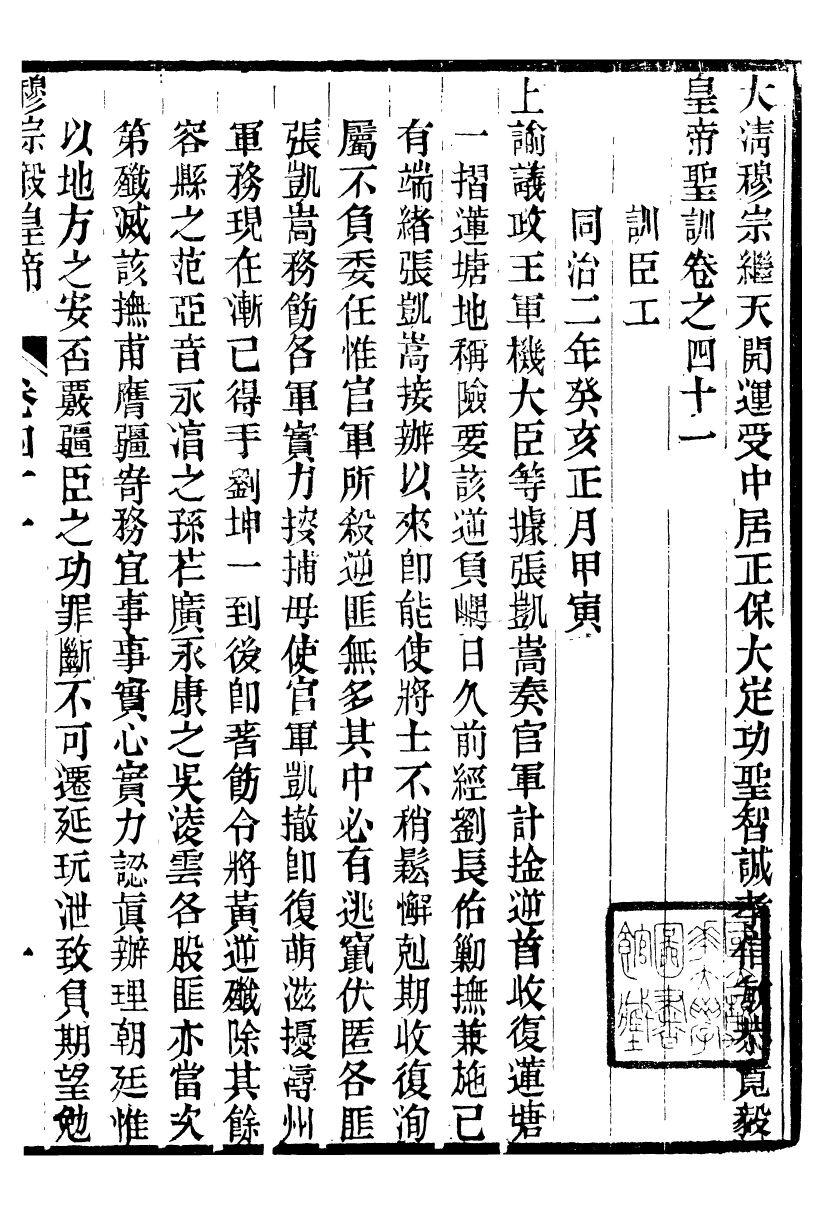 大清穆宗繼天開運受中居正保大定功聖智誠孝信敏恭寬毅
皇帝聖訓卷之四十一
訓臣工
同治二年癸亥正月甲寅
上諭議政王軍機大臣等據張凱嵩奏官軍計擒逆首收復蓮塘
一摺蓮塘地稱險要該逆負嵎日久前經劉長佑勦撫兼施已
有端緒張凱嵩接辦以來卽能使將士不稍鬆懈剋期收復洵
屬不負委任惟官軍所殺逆匪無多其中必有逃竄伏匿各匪
張凱嵩務飭各軍實力按捕毋使官軍凱撤卽復萌滋擾潯州
軍務現在漸已得手劉坤一到後卽著飭令將黃逆殲除其餘
容縣之范亞音永淯之孫芒廣永康之吳淩雲各股匪亦當次
第殲滅該撫甫膺疆寄務宜事事實心實力認眞辦理朝廷惟
以地方之安否覈疆臣之功罪斷不可遷延玩泄致負期望勉
穆宗毅皇帝 卷四十一 一
國立北平大學圖書館藏